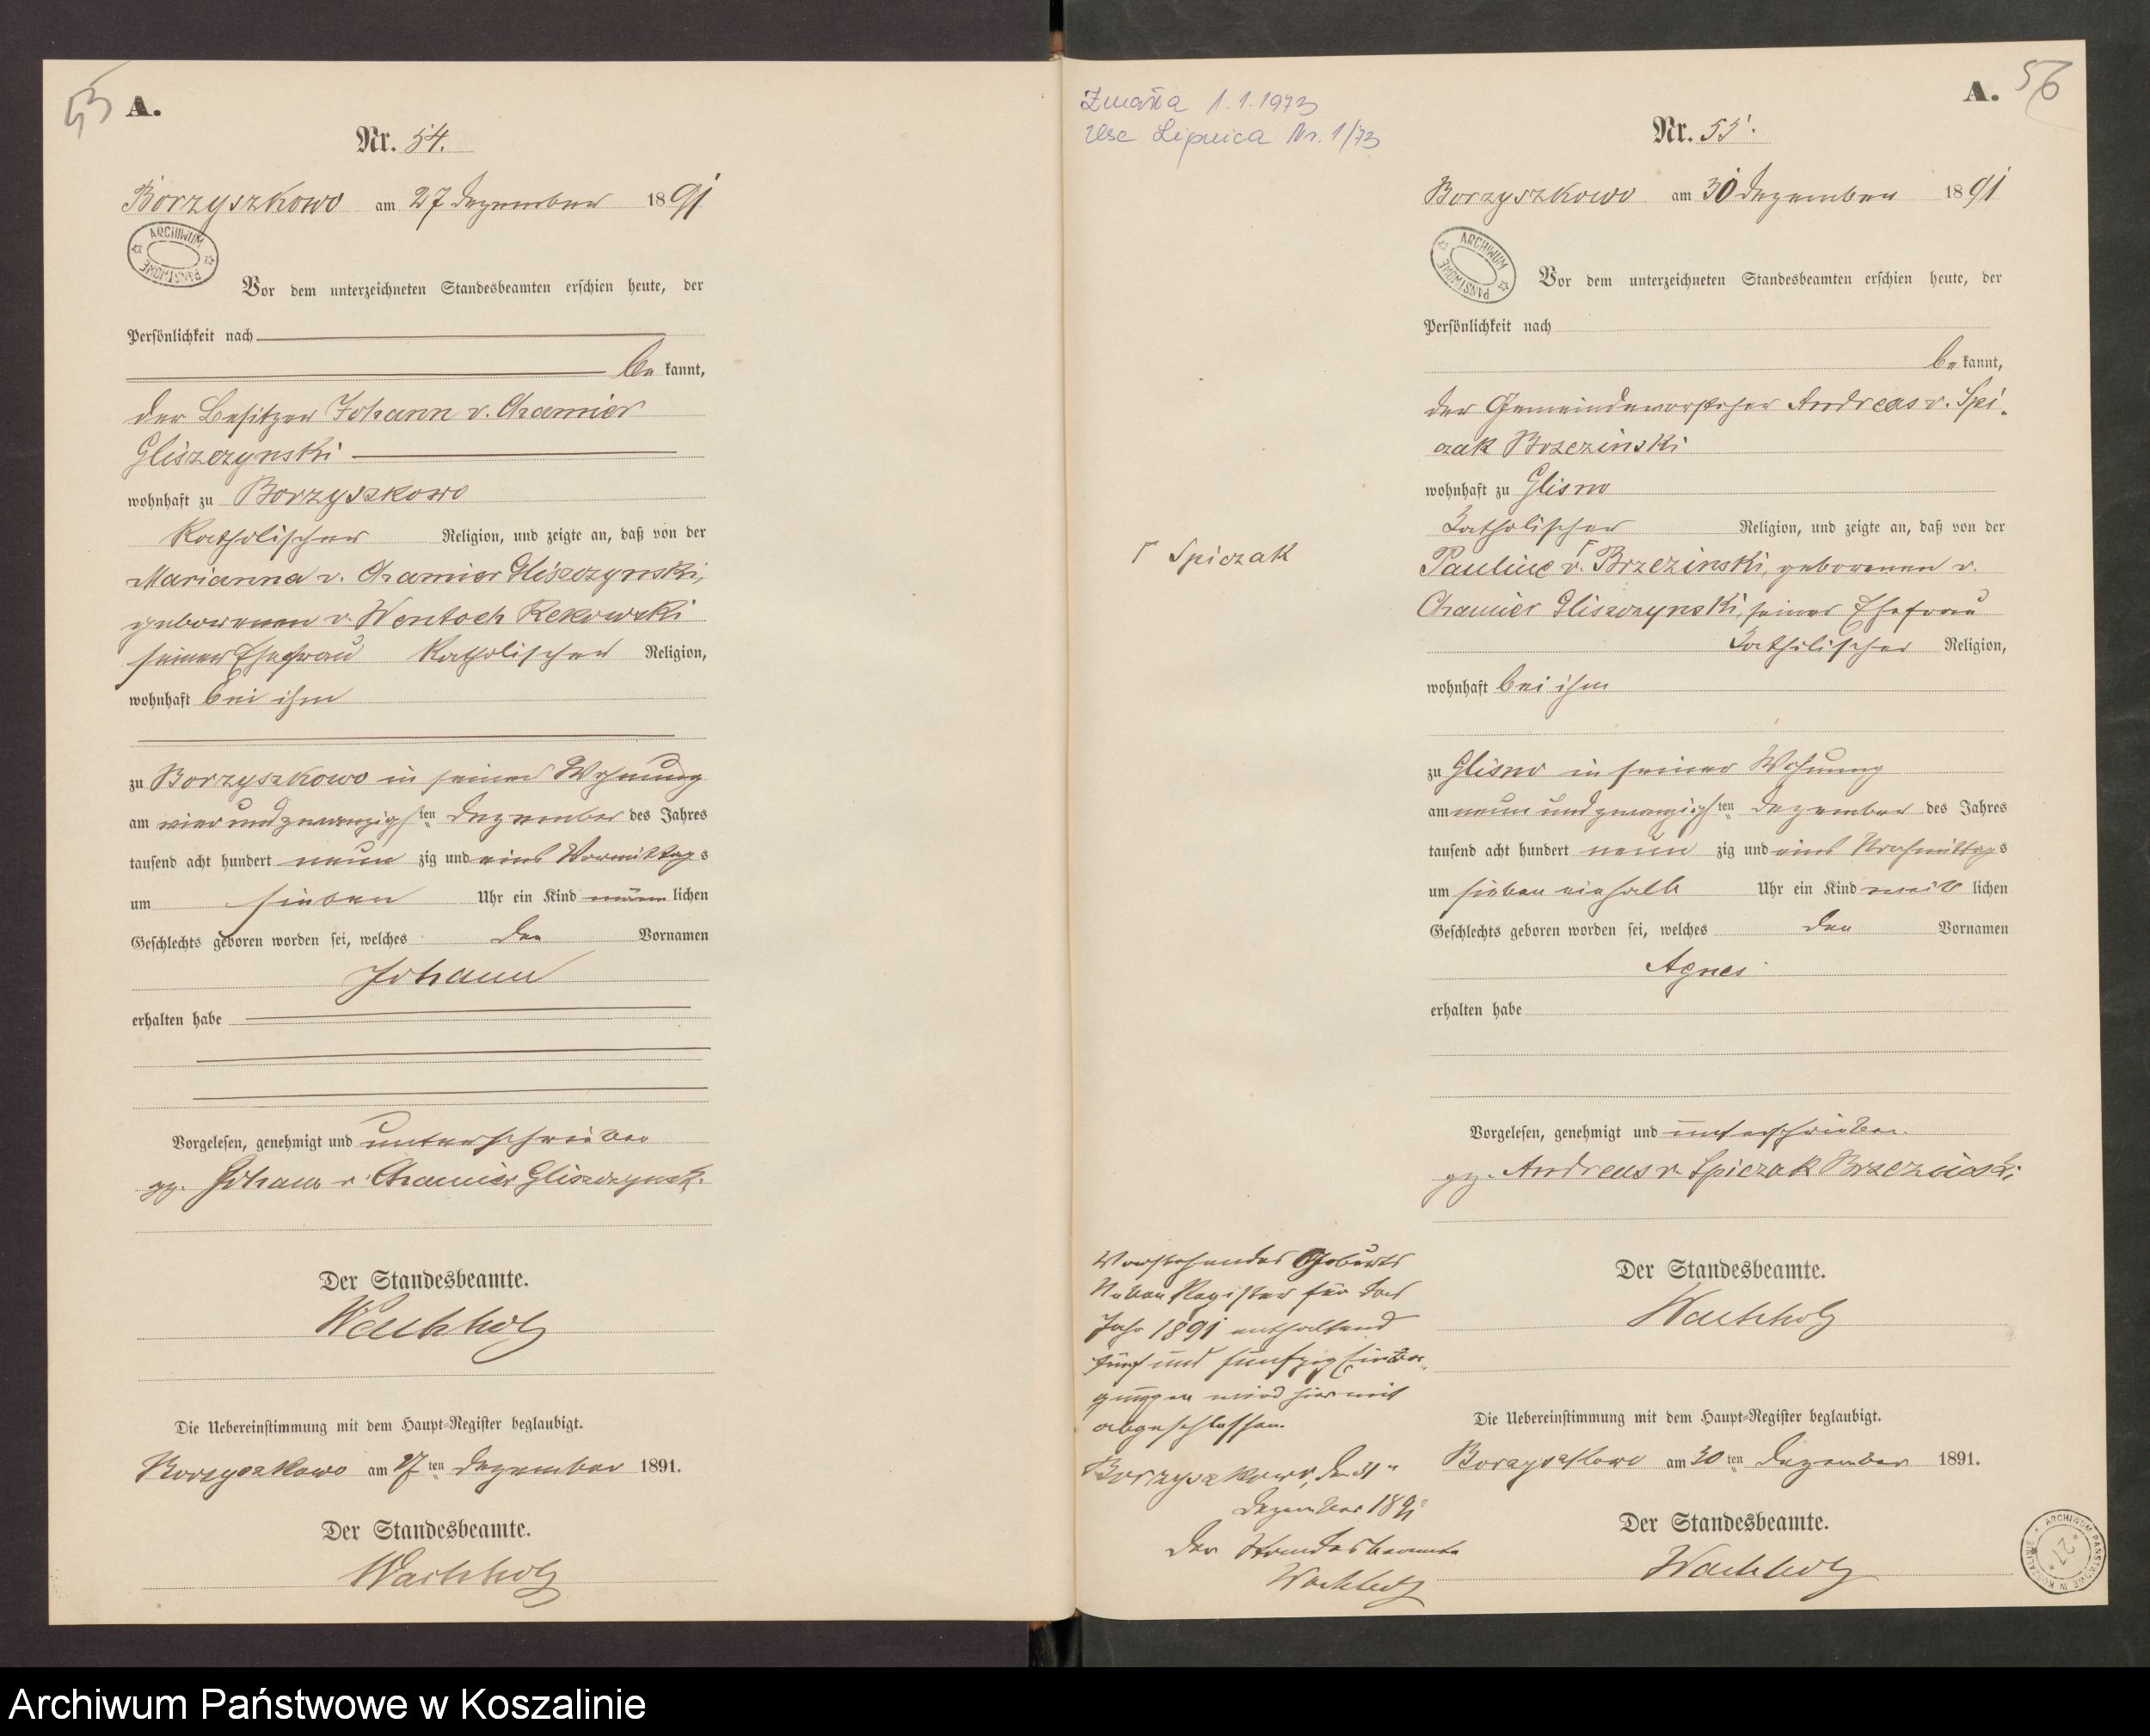 53
A.
Nr. 54.
Borzyszkowo am 27 Dezember 1891
ARCHIWUM PAŃSTWOWE
Vor dem unterzeichneten Standesbeamten erschien heute, der
Persönlichkeit nach
be kannt,
der Besitzer Johann v. Chamier
Gliszczynski
wohnhaft zu Borzyszkowo
Katholischer Religion, und zeigte an, daß von der
Marianna v. Chamier Gliszczynski,
geborenen v. Wentoch Rekowski
seiner Ehefrau Katholischer Religion,
wohnhaft bei ihm
zu Borzyszkowo in seiner Wohnung
am vier und zwanzigsten Dezember des Jahres
tausend acht hundert neun zig und eins Vormittags
um sieben Uhr ein Kind männ lichen
Geschlechts geboren worden sei, welches den Vornamen
Johann
erhalten habe
Vorgelesen, genehmigt und unterschrieben
gz. Johann v. Chamier Gliszczynski.
Der Standesbeamte.
Wachholz
Die Uebereinstimmung mit dem Haupt-Register beglaubigt.
Borzyszkowo am 27ten Dezember 1891.
Der Standesbeamte.
Wachholz
Zmarła 1.1.1973
Usc Lipnica Nr. 1/73
A.
56
Nr. 55.
Borzyszkowo am 30 Dezember 1891
ARCHIWUM PAŃSTWOWE
Vor dem unterzeichneten Standesbeamten erschien heute, der
Persönlichkeit nach
be kannt,
der Gemeindevorsteher Andreas v. Spi-
czak Brzezinski
wohnhaft zu Glisno
Katholischer Religion, und zeigte an, daß von der
Γ Spiczak
Pauline v. Γ Brzezinski, geborenen v.
Chamier Gliszczynski, seiner Ehefrau
Katholischer Religion,
wohnhaft bei ihm
zu Glisno in seiner Wohnung
am neun und zwanzigsten Dezember des Jahres
tausend acht hundert neun zig und eins Nachmittags
um sieben einhalb Uhr ein Kind weib lichen
Geschlechts geboren worden sei, welches den Vornamen
Agnes
erhalten habe
Vorgelesen, genehmigt und unterschrieben.
gz. Andreas v. Spiczak Brzezinski
Der Standesbeamte.
Wachholz
Die Uebereinstimmung mit dem Haupt-Register beglaubigt.
Borzyszkowo am 30ten Dezember 1891.
Der Standesbeamte.
Wachholz
Vorstehendes Geburts
Neben Register für das
Jahr 1891 enthaltend
fünf und fünfzig Eintra-
gungen wird hiermit
abgeschlossen.
Borzyszkowo, den 31ten
Dezember 1891
Der Standesbeamte
Wachholz
ARCHIWUM PAŃSTWOWE W KOSZALINIE
27
Archiwum Państwowe w Koszalinie